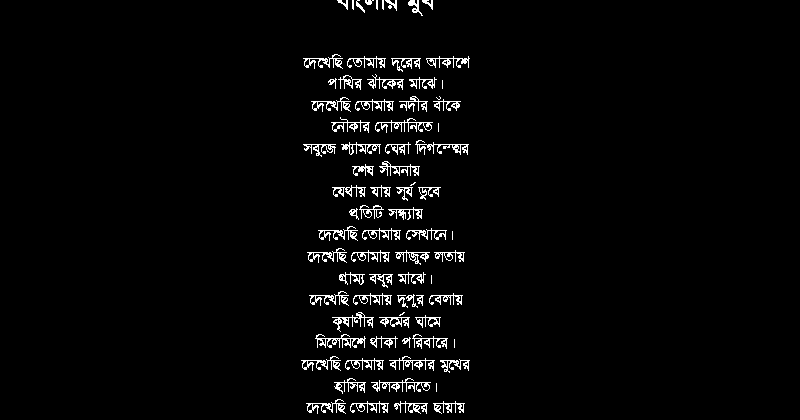 বাংলার মুখ
দেখেছি তোমায় দূরের আকাশে
পাখির ঝাঁকের মাঝে।
দেখেছি তোমায় নদীর বাঁকে
নৌকার দোলানিতে।
সবুজে শ্যামলে ঘেরা দিগন্তের
শেষ সীমনায়
যেথায় যায় সূর্য ডুবে
প্রতিটি সন্ধ্যায়
দেখেছি তোমায় সেখানে।
দেখেছি তোমায় লাজুক লতায়
গ্রাম্য বধুর মাঝে।
দেখেছি তোমায় দুপুর বেলায়
কৃষাণীর কর্মের ঘামে
মিলেমিশে থাকা পরিবারে।
দেখেছি তোমায় বালিকার মুখের
হাসির ঝলকানিতে।
দেখেছি তোমায় গাছের ছায়ায়